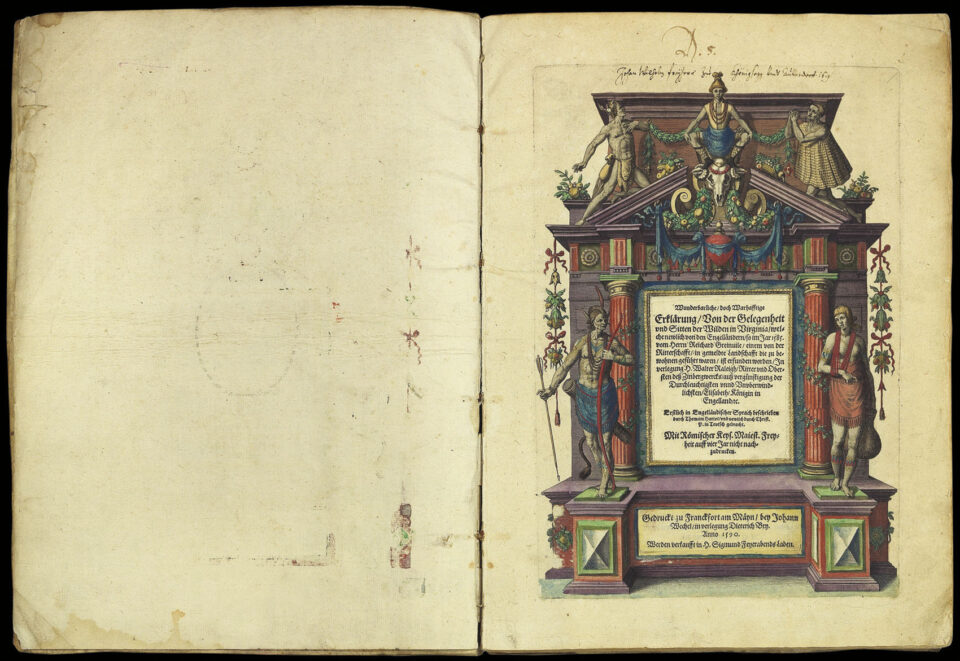 A. 8.
Wunderbarliche / doch Warhafftige
Erklärung / Von der Gelegenheit
vnd Sitten der Wilden in Virginia / wel-
che newlich von den Engelländern / so im Jar 1585.
vom Herrn Reichard Greinuile / einem von der
Ritterschafft / in gemeldte Landschafft die zu be-
wohnen geführt waren / ist erfunden worden / In
verlegung H. Walter Raleigh / Ritter vnd Ober-
sten deß Zinbergwercks / auß vergünstigung der
Durchleuchtigsten vnnd Vnvberwind-
lichsten / Elisabeth / Königin in
Engelland rc.
Erstlich in Engelländischer Sprach beschrieben
durch Thomam Hariot / vnd newlich durch Christ.
P. in Teutsch gebracht.
Mit Römischer Keys. Maiest. Frey-
heit auff vier Jar nicht nach-
zudrucken.
Gedruckt zu Franckfort am Mäyn / bey Johann
Wechel / in verlegung Dieterich Bry.
Anno 1590.
Werden verkaufft in H. Sigmund Feyerabends Laden.